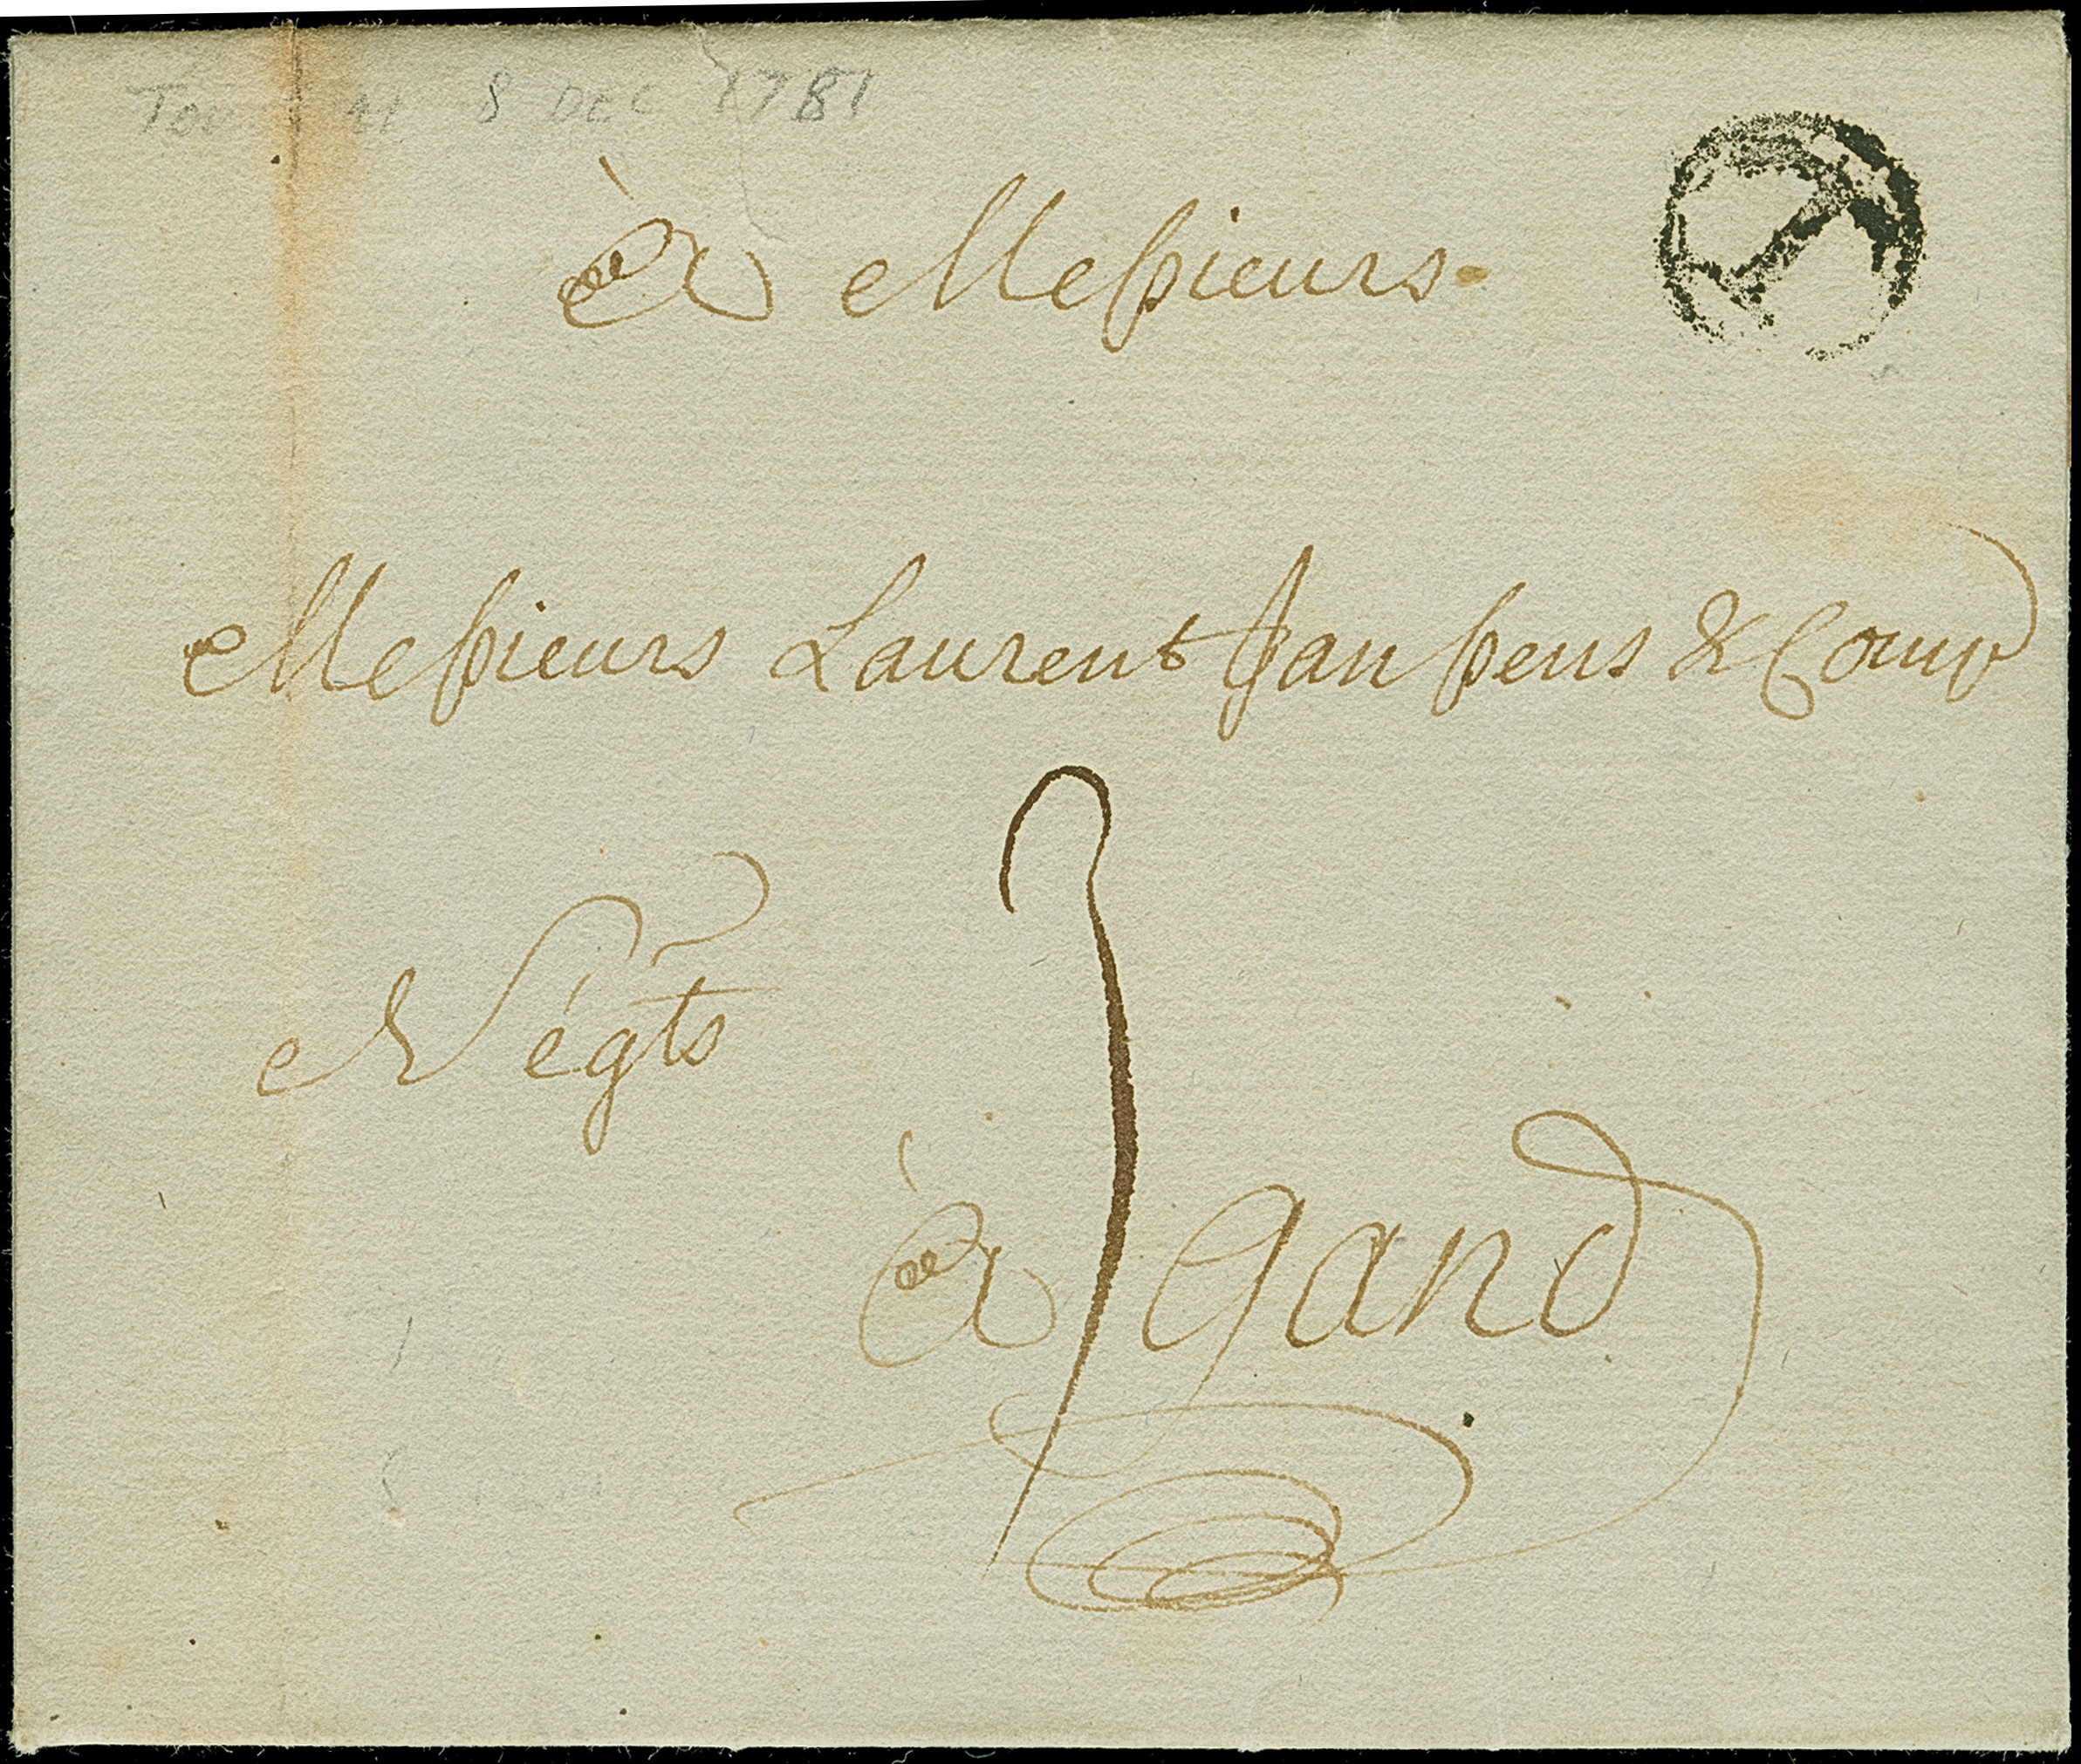 8 DEC 1781
T
à Messieurs
Messieurs Laurent Janssens & Comp
Négts
3
à gand